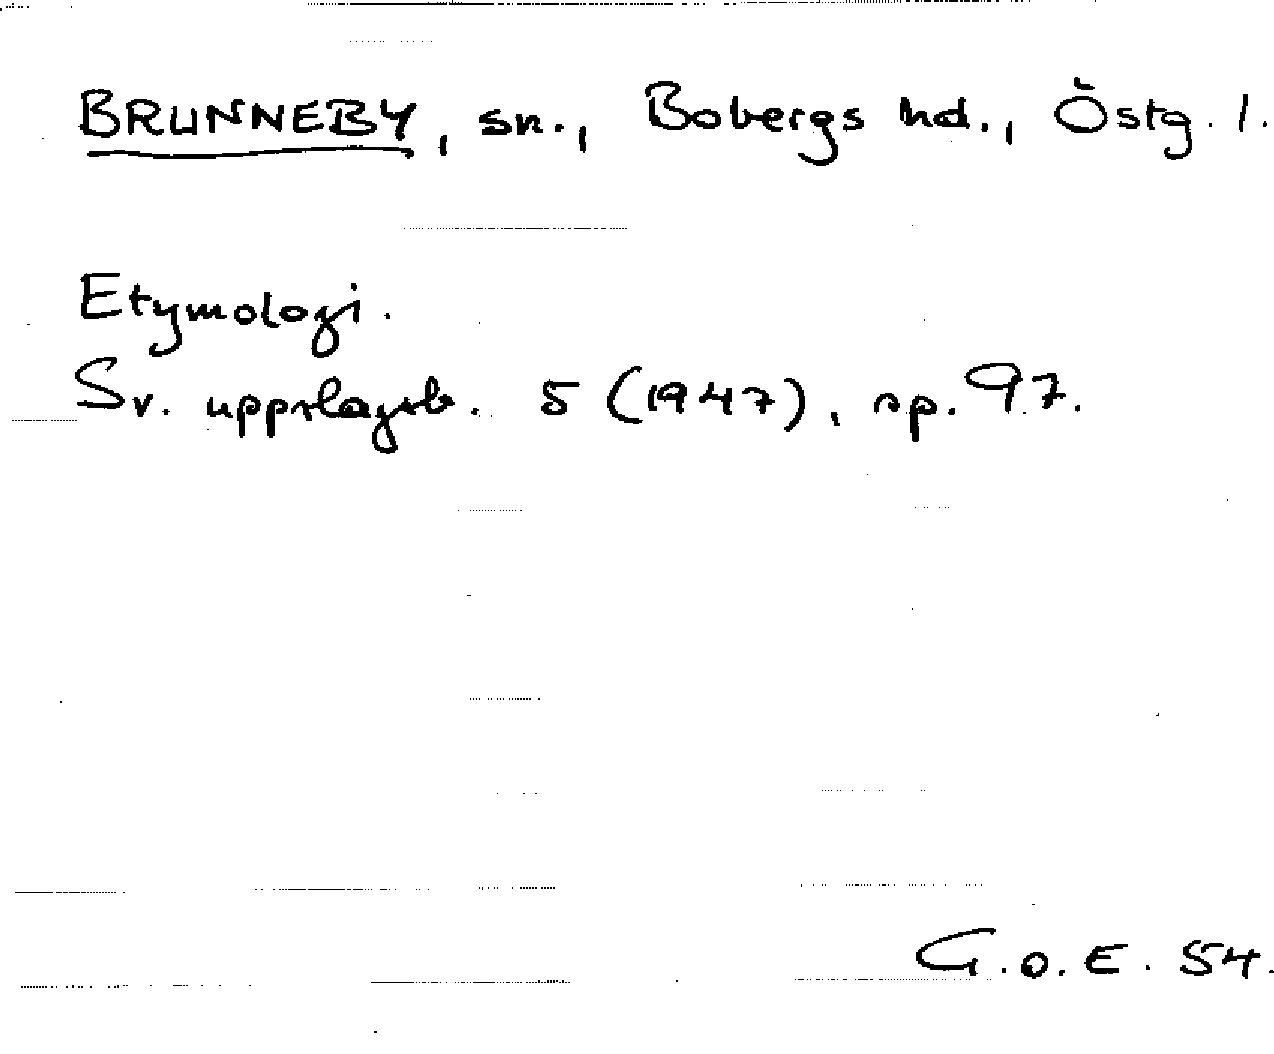 BRUNNEBY, sn., Bobergs hd., Östg. l.
Etymologi.
Sv. uppslagsb. 5 (1947), sp. 97.
G.O.E. 54.